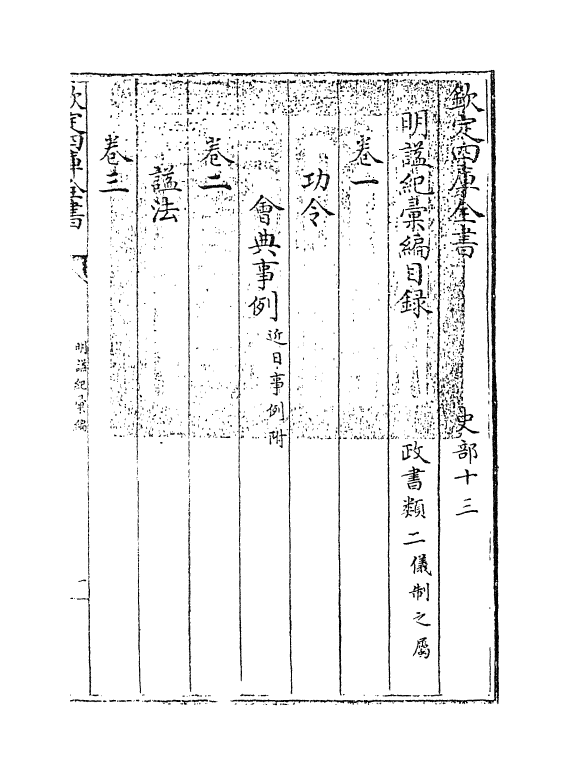 欽定四庫全書 史部十三
明諡紀彙編目録 政書類二儀制之屬
卷一
功令
會典事例近日事例附
卷二
諡法
卷三
欽定四庫全書 明諡紀彙編 一